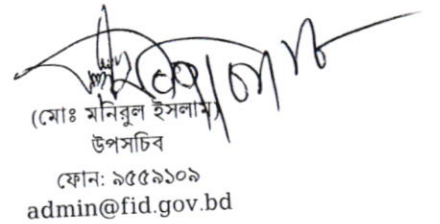 (মোঃ মনিরুল ইসলাম)
উপসচিব
ফোন: ৯৫৫৯১০৯
admin@fid.gov.bd